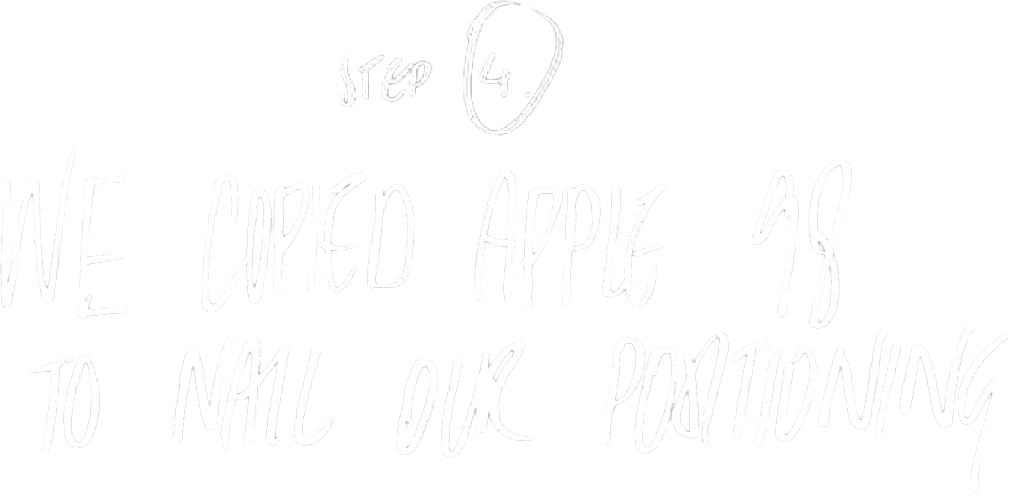 STEP 4.
WE COPIED APPLE 98
TO NAIL OUR POSITIONING